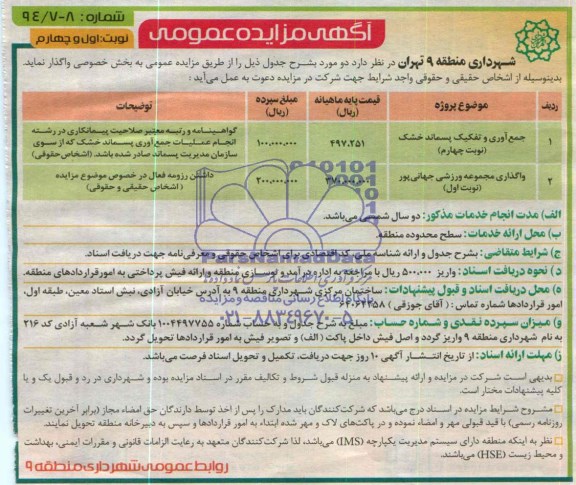 شماره: ۸-۹۴/۷
نوبت: اول و چهارم
آگهی مزایده عمومی
شهرداری منطقه ۹ تهران در نظر دارد دو مورد بشرح جدول ذیل را از طریق مزایده عمومی به بخش خصوصی واگذار نماید.
بدینوسیله از اشخاص حقیقی و حقوقی واجد شرایط جهت شرکت در مزایده دعوت به عمل می‌آید:
ردیف موضوع پروژه قیمت پایه ماهیانه (ریال) مبلغ سپرده (ریال) توضیحات
۱ جمع‌آوری و تفکیک پسماند خشک (نوبت چهارم) ۴۹۷.۲۵۱ ۱۰۰.۰۰۰.۰۰۰ گواهینامه و رتبه معتبر صلاحیت پیمانکاری در رشته
انجام عملیات جمع‌آوری پسماند خشک که از سوی
سازمان مدیریت پسماند صادر شده باشد. (اشخاص حقوقی)
۲ واگذاری مجموعه ورزشی جهانی‌پور (نوبت اول) ۳۷۰.۰۰۰.۰۰۰ ۲۰۰.۰۰۰.۰۰۰ داشتن رزومه فعال در خصوص موضوع مزایده
(اشخاص حقیقی و حقوقی)
الف) مدت انجام خدمات مذکور: دو سال شمسی می‌باشد.
ب) محل ارائه خدمات: سطح محدوده منطقه.
ج) شرایط متقاضی: بشرح جدول و ارائه شناسه ملی، کد اقتصادی برای اشخاص حقوقی و معرفی‌نامه جهت دریافت اسناد.
د) نحوه دریافت اسناد: واریز ۵۰۰.۰۰۰ ریال با مراجعه به اداره درآمد و نوسازی منطقه و ارائه فیش پرداختی به امور قراردادهای منطقه.
ه) محل دریافت اسناد و قبول پیشنهادات: ساختمان مرکزی شهرداری منطقه ۹ به آدرس خیابان آزادی، نبش استاد معین، طبقه اول،
امور قراردادها شماره تماس: (آقای جوزقی) ۶۴۰۶۴۳۵۸
و) میزان سپرده نقدی و شماره حساب: مبلغ به شرح جدول و به حساب شماره ۱۰۰۴۴۹۷۷۵۵ بانک شهر شعبه آزادی کد ۲۱۶
به نام شهرداری منطقه ۹ واریز گردد و اصل فیش داخل پاکت (الف) و تصویر فیش به امور قراردادها تحویل گردد.
ز) مهلت ارائه اسناد: از تاریخ انتشار آگهی ۱۰ روز جهت دریافت، تکمیل و تحویل اسناد فرصت می‌باشد.
بدیهی است شرکت در مزایده و ارائه پیشنهاد به منزله قبول شروط و تکالیف مقرر در اسناد مزایده بوده و شهرداری در رد و قبول یک و یا
کلیه پیشنهادات مختار است.
مشروح شرایط مزایده در اسناد درج می‌باشد که شرکت‌کنندگان باید مدارک را پس از اخذ توسط دارندگان حق امضاء مجاز (برابر آخرین تغییرات
روزنامه رسمی) با قید قبولی مهر و امضاء نموده و در پاکت‌های لاک و مهر شده ابتداء به امور قراردادها و سپس به دبیرخانه منطقه تحویل نمایند.
نظر به اینکه منطقه دارای سیستم مدیریت یکپارچه (IMS) می‌باشد، لذا شرکت‌کنندگان متعهد به رعایت الزامات قانونی و مقررات ایمنی، بهداشت
و محیط زیست (HSE) می‌باشند.
روابط عمومی شهرداری منطقه ۹
پایگاه اطلاع رسانی مناقصه و مزایده
۰۲۱-۸۸۳۴۹۶۷۰-۵